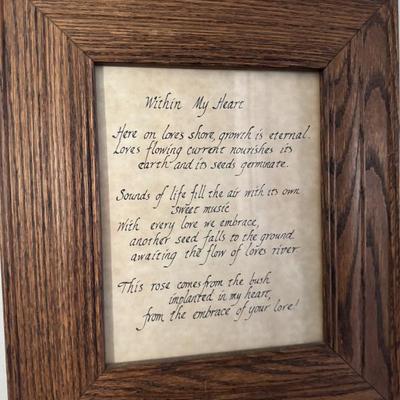 Within My Heart
Here on loves shore, growth is eternal.
Loves flowing current nourishes its
earth and its seeds germinate.
Sounds of life fill the air with its own
sweet music
With every love we embrace,
another seed falls to the ground
awaiting the flow of loves river
This rose comes from the bush
implanted in my heart,
from the embrace of your love!